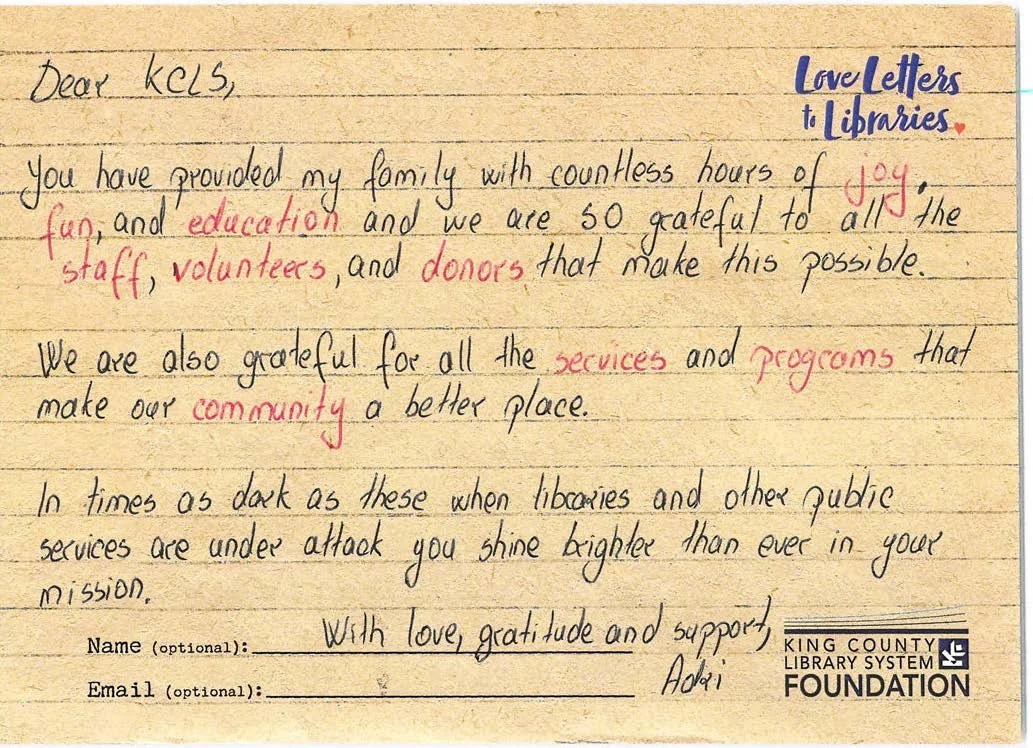 Dear KCLS,
Love Letters
to Libraries
You have provided my family with countless hours of joy,
fun, and education and we are so grateful to all the
staff, volunteers, and donors that make this possible.
We are also grateful for all the services and programs that
make our community a better place.
In times as dark as these when libraries and other public
services are under attack you shine brighter than ever in your
mission.
With love, gratitude and support,
Adri
Name (optional):
Email (optional):
KING COUNTY
LIBRARY SYSTEM
FOUNDATION